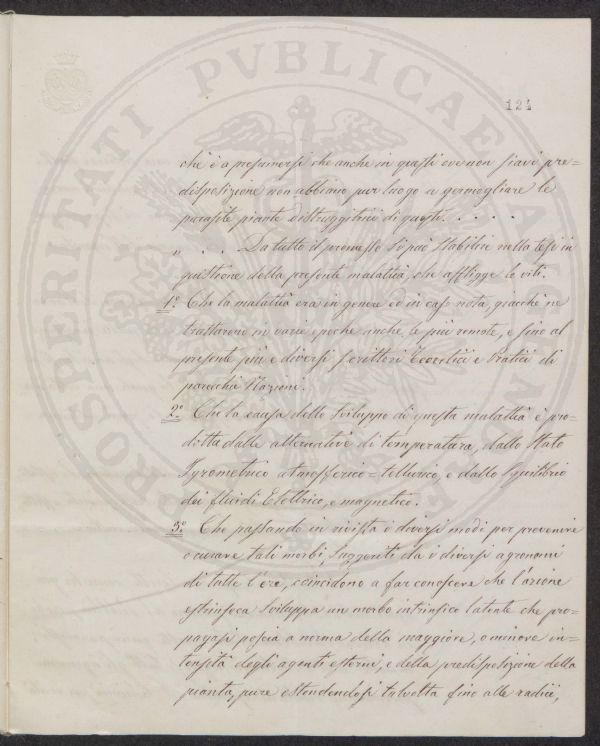 PROSPERITATI PVBLICAE
124
che è a presumersi che anche in questi ove non siavi pre=
disposizione non abbiano pur luogo a germogliare le
parasite piante distruggitrici di questi. . . . .
" . . . Da tutto il premesso si può stabilire nella tesi in
quistione della presente malattia che affligge le viti.
1.º Che la malattia era in genere ed in caso nota, giacchè ne
trattarono in varie epoche anche le più remote, e fino al
presente più e diversi scrittori Teoretici e Pratici di
parecchie Nazioni.
2.º Che la causa dello sviluppo di questa malattia è pro=
dotta dalle alternative di temperatura, dallo stato
Igrometrico atmosferico=tellurico, e dallo squilibrio
dei fluidi Elettrico, e magnetico.
3.º Che passando in rivista i diversi modi per prevenire
o curare tali morbi, suggeriti da i diversi agronomi
di tutte l'ere, coincidono a far conoscere che l'azione
estrinseca sviluppa un morbo intrinsico latente che pro=
pagasi poscia a norma della maggiore, o minore in=
tensità degli agenti esterni, e della predisposizione della
pianta, pure estendendosi talvolta fino alle radici,